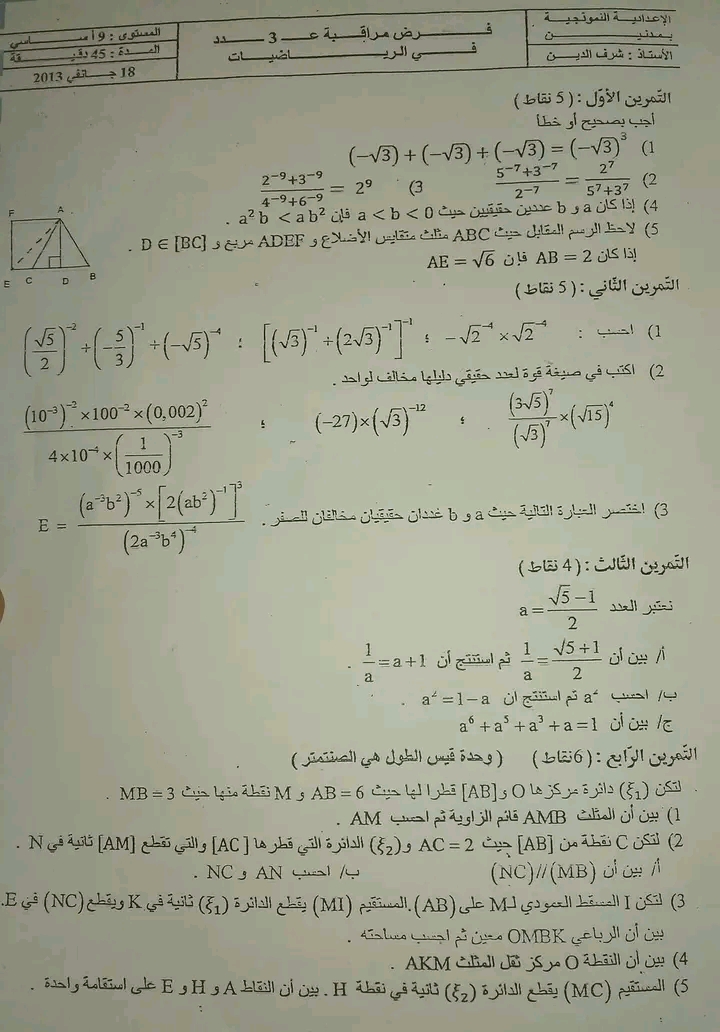 الإعدادية النموذجية
بمدنين
الأستاذ : شرف الدين
فرض مراقبة عـ 3 ـدد
في الرياضيات
المستوى : 9 أساسي
المدة : 45 دقيقة
18 جانفي 2013
التمرين الأول : ( 5 نقاط )
أجب بصحيح أو خطأ
1) (-√3) + (-√3) + (-√3) = (-√3)³
2) (5⁻⁷+3⁻⁷)/2⁻⁷ = 2⁷/(5⁷+3⁷) 3) (2⁻⁹+3⁻⁹)/(4⁻⁹+6⁻⁹) = 2⁹
4) إذا كان a و b عددين حقيقيين حيث a < b < 0 فإن a²b < ab² .
5) لاحظ الرسم المقابل حيث ABC مثلث متقايس الأضلاع و ADEF مربع و D ∈ [BC] .
إذا كان AB = 2 فإن AE = √6
F A
E C D B
التمرين الثاني : ( 5 نقاط )
1) احسب : -√2⁻⁴ × √2⁻⁴ ؛ [(√3)⁻¹ + (2√3)⁻¹]⁻¹ ؛ (√5/2)⁻² + (-5/3)⁻¹ ÷ (-√5)⁻⁴
2) اكتب في صيغة قوة لعدد حقيقي دليلها مخالف لواحد .
(3√5)⁷/(√3)⁷ × (√15)⁴ ؛ (-27) × (√3)⁻¹² ؛ ((10⁻³)⁻² × 100⁻² × (0,002)²)/(4×10⁻⁴ × (1/1000)⁻³)
3) اختصر العبارة التالية حيث a و b عددان حقيقيان مخالفان للصفر . E = ((a⁻³b²)⁻⁵ × [2(ab²)⁻¹]³)/(2a⁻³b⁴)⁻⁴
التمرين الثالث : ( 4 نقاط )
نعتبر العدد a = (√5-1)/2
أ/ بين أن 1/a = (√5+1)/2 ثم استنتج أن 1/a = a+1 .
ب/ احسب a² ثم استنتج ان a² = 1-a .
ج/ بين أن a⁶ + a⁵ + a³ + a = 1
التمرين الرابع : ( 6نقاط ) ( وحدة قيس الطول هي الصنتمتر )
لتكن (ξ₁) دائرة مركزها O و [AB] قطرا لها حيث AB = 6 و M نقطة منها حيث MB = 3 .
1) بين أن المثلث AMB قائم الزاوية ثم احسب AM .
2) لتكن C نقطة من [AB] حيث AC = 2 و (ξ₂) الدائرة التي قطرها [AC] والتي تقطع [AM] ثانية في N .
أ/ بين أن (NC)//(MB) ب/ احسب AN و NC .
3) لتكن I المسقط العمودي لـ M على (AB).المستقيم (MI) يقطع الدائرة (ξ₁) ثانية في K ويقطع (NC) في E.
بين أن الرباعي OMBK معين ثم احسب مساحته .
4) بين أن النقطة O مركز ثقل المثلث AKM .
5) المستقيم (MC) يقطع الدائرة (ξ₂) ثانية في نقطة H . بين أن النقاط A و H و E على استقامة واحدة .